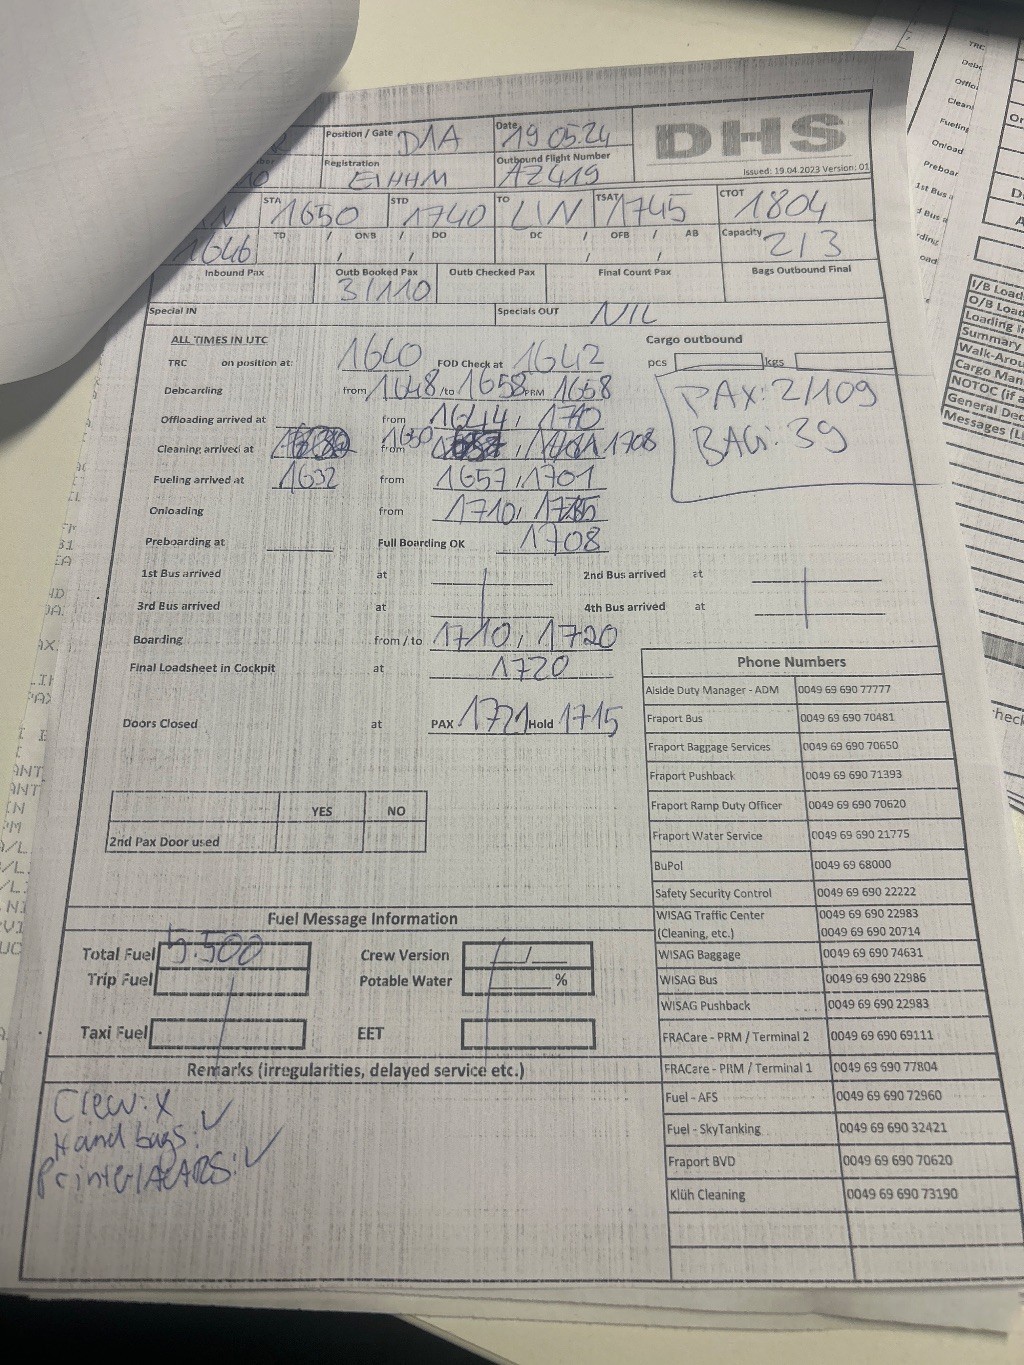 Position / Gate D1A Date 19 05.24 DHS
Registration EIHHM Outbound Flight Number AZ419 Issued: 19.04.2023 Version: 01
STA 1650 STD 1740 TO LIN TSAT 1745 CTOT 1804
1646 TD / ONB / DO DC / OFB / AB Capacity 213
Inbound Pax Outb Booked Pax 3/110 Outb Checked Pax Final Count Pax Bags Outbound Final
Special IN Specials OUT NIL
ALL TIMES IN UTC Cargo outbound
TRC on position at: 1640 FOD Check at 1642 pcs kgs
Deboarding from 1648 /to 1658 PRM 1658 PAX: 2/109
Offloading arrived at from 1644, 1710
Cleaning arrived at from 1650 1708 BAG: 39
Fueling arrived at 1632 from 1657, 1701
Onloading from 1710, 1715
Preboarding at Full Boarding OK 1708
1st Bus arrived at 2nd Bus arrived at
3rd Bus arrived at 4th Bus arrived at
Boarding from / to 1710, 1720
Final Loadsheet in Cockpit at 1720
Doors Closed at PAX 1721 Hold 1715
YES NO
2nd Pax Door used
Phone Numbers
Alside Duty Manager - ADM 0049 69 690 77777
Fraport Bus 0049 69 690 70481
Fraport Baggage Services 0049 69 690 70650
Fraport Pushback 0049 69 690 71393
Fraport Ramp Duty Officer 0049 69 690 70620
Fraport Water Service 0049 69 690 21775
BuPol 0049 69 68000
Safety Security Control 0049 69 690 22222
WISAG Traffic Center 0049 69 690 22983
(Cleaning, etc.) 0049 69 690 20714
WISAG Baggage 0049 69 690 74631
WISAG Bus 0049 69 690 22986
WISAG Pushback 0049 69 690 22983
FRACare - PRM / Terminal 2 0049 69 690 69111
FRACare - PRM / Terminal 1 0049 69 690 77804
Fuel - AFS 0049 69 690 72960
Fuel - SkyTanking 0049 69 690 32421
Fraport BVD 0049 69 690 70620
Klüh Cleaning 0049 69 690 73190
Fuel Message Information
Total Fuel 5.500 Crew Version
Trip Fuel Potable Water %
Taxi Fuel EET
Remarks (irregularities, delayed service etc.)
Crew: x
Hand bags: ✓
Printer/ACARS: ✓
TRC
Clean
Fueling
Onload
Preboar
1st Bus
I/B Load
O/B Load
Loading
Summary
Walk-Arou
Cargo Man
NOTOC (if a
General Dec
Messages (L